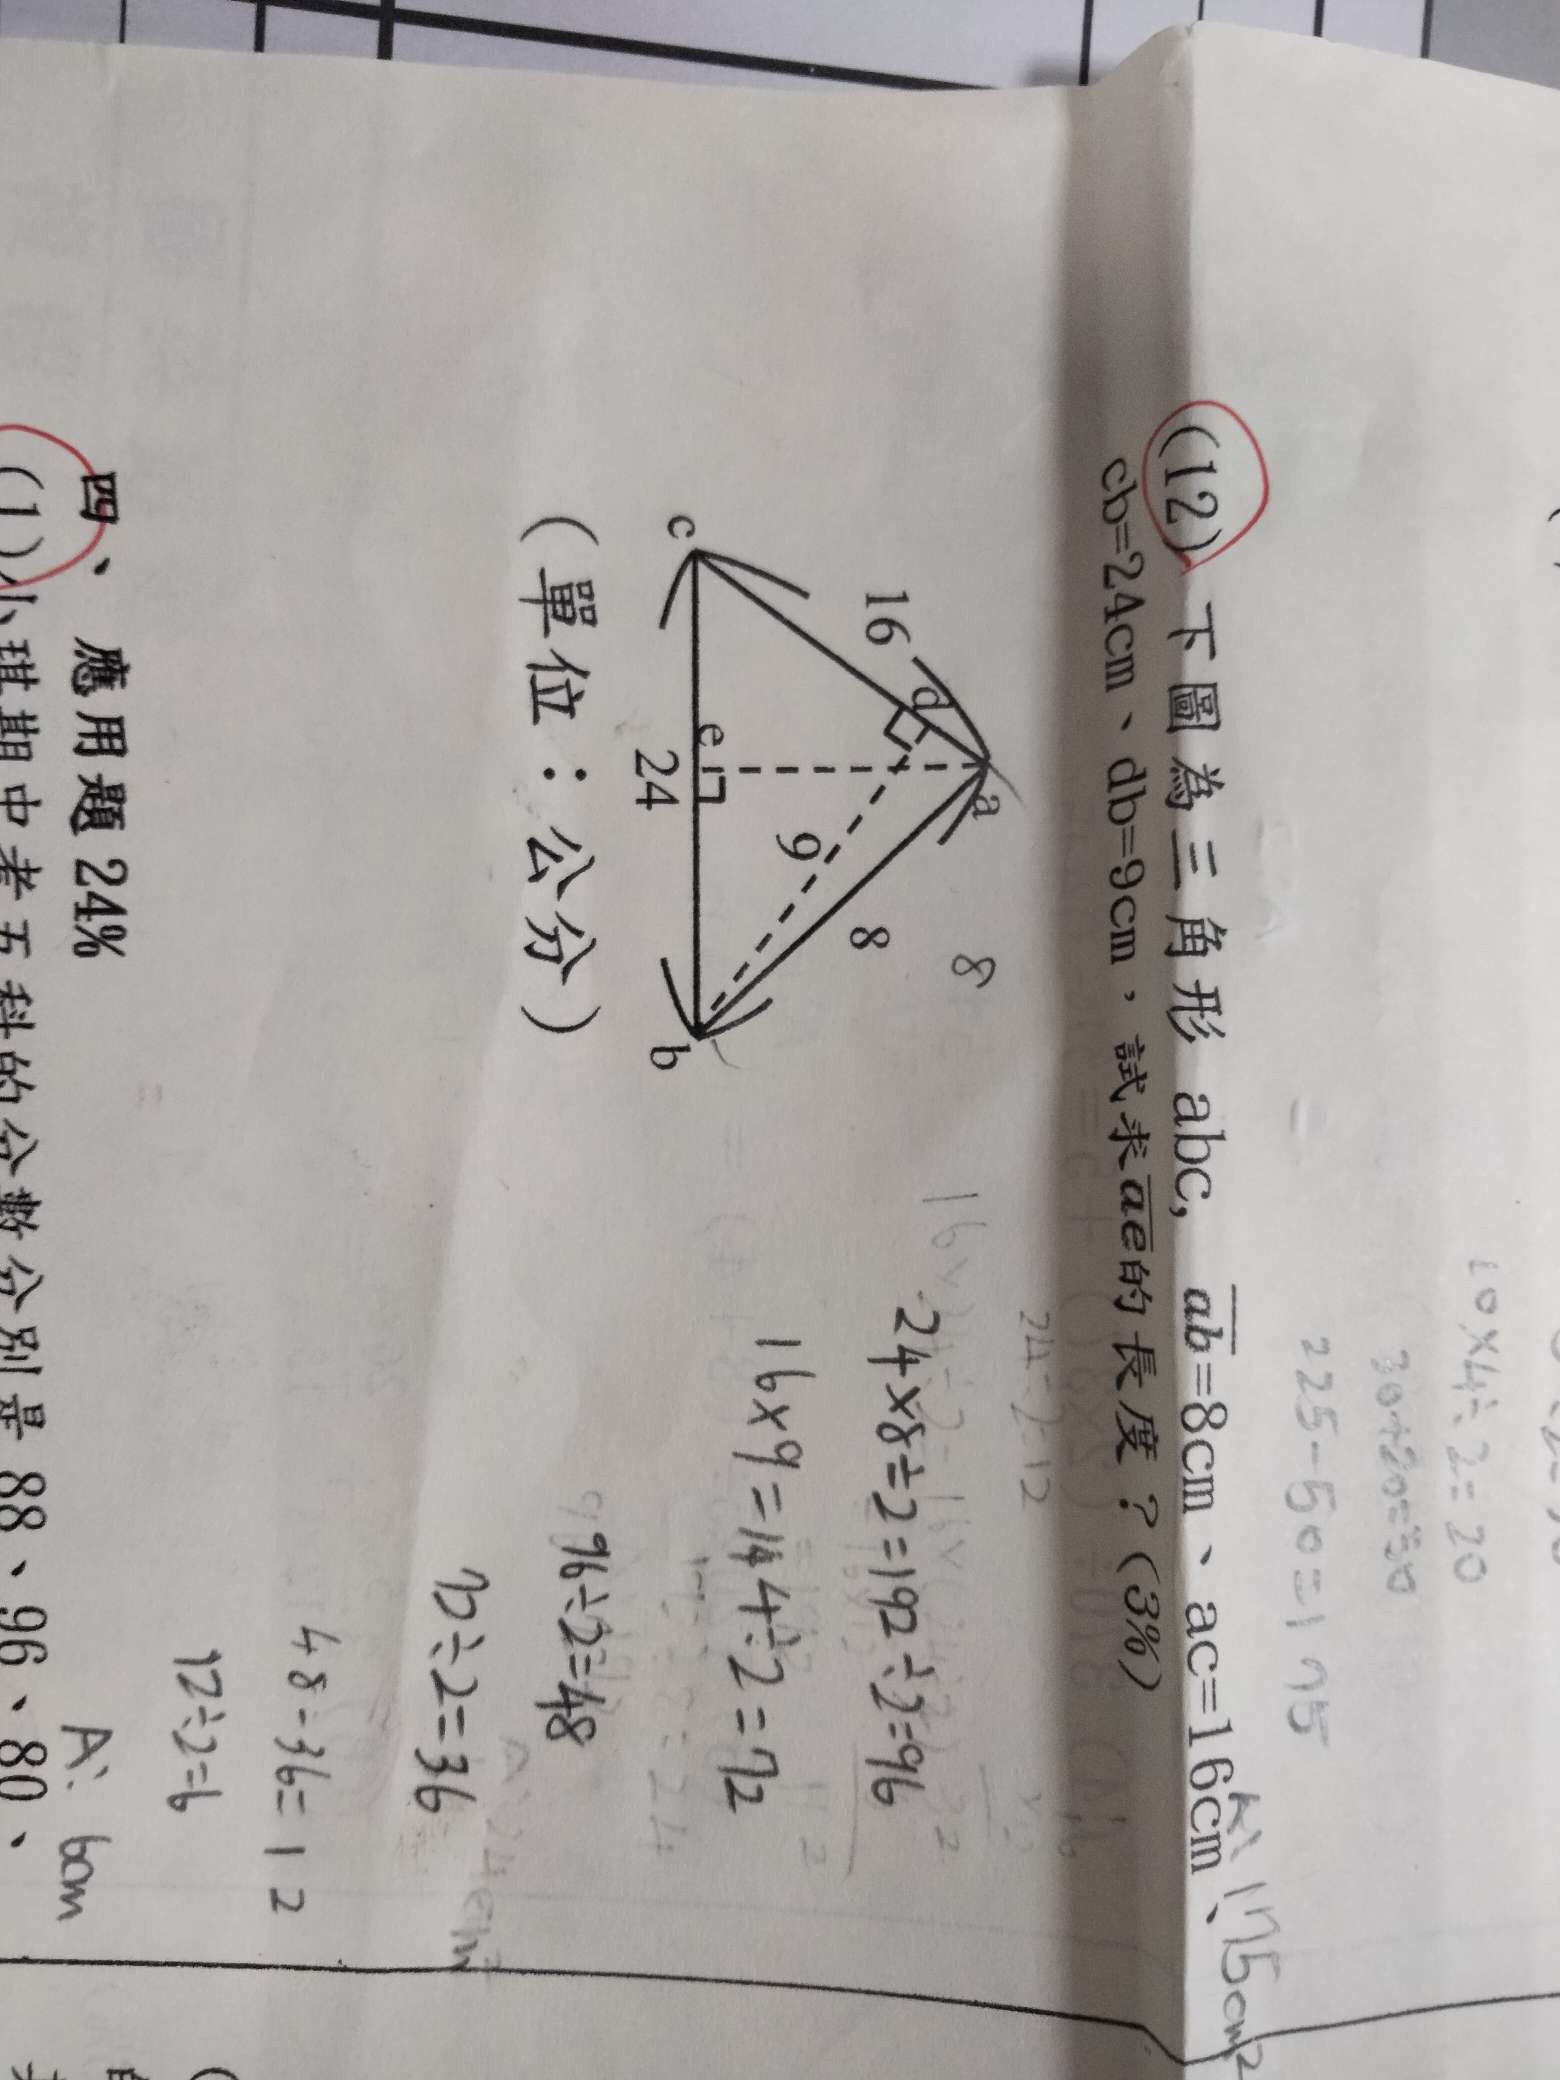 10×4÷2=20
30+20=50
225-50=175
A: 175cm²
(12) 下圖為三角形 abc, ab=8cm、ac=16cm、
cb=24cm、db=9cm,試求ae的長度？(3%)
24÷2=12
8
a
16
d
8
9
e
c
24
b
(單位：公分)
24×8÷2=192÷2=96
16×9=144÷2=72
96÷2=48
72÷2=36
48-36=12
12÷2=6
A: 6cm
四、應用題 24%
(1)小琪期中考五科的分數分別是 88、96、80、